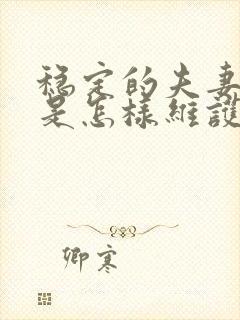 稳定的夫妻
是怎樣維護
卿寒